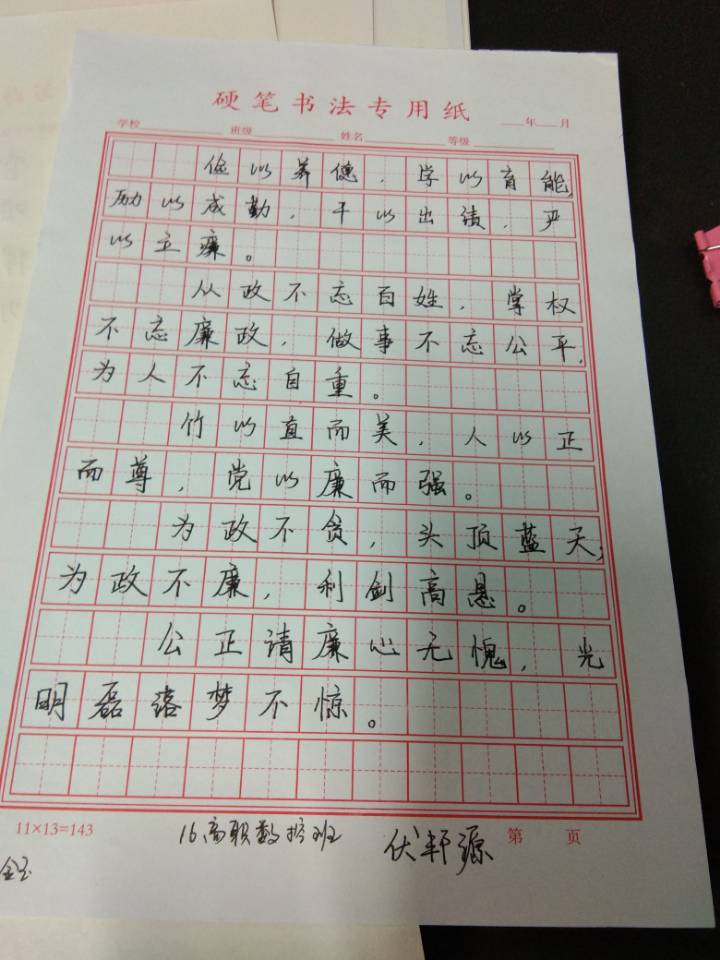 硬笔书法专用纸
年 月
学校 班级 姓名 等级
俭以养德，学以育能，
励以成勤，干以出绩，严
以立廉。
从政不忘百姓，掌权
不忘廉政，做事不忘公平，
为人不忘自重。
竹以直而美，人以正
而尊，党以廉而强。
为政不贪，头顶蓝天；
为政不廉，利剑高悬。
公正请廉心无愧，光
明磊落梦不惊。
11×13=143
第 页
16高职数控班 伏轩源